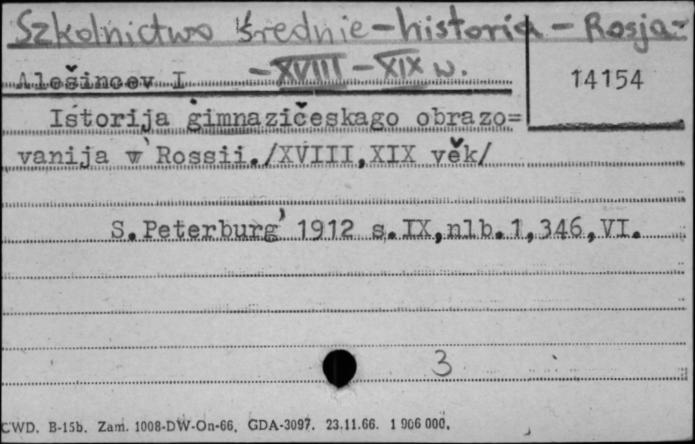 Szkolnictwo średnie - historia - Rosja -
- XVIII - XIX w.
Alešincev I
14154
Istorija gimnazičeskago obrazo=
vanija w' Rossii./XVIII,XIX věk/
S.Peterburg' 1912 s.IX,nlb.1,346,VI.
3
CWD. B-15b. Zam. 1008-DW-On-66. GDA-3097. 23.11.66. 1 906 000.